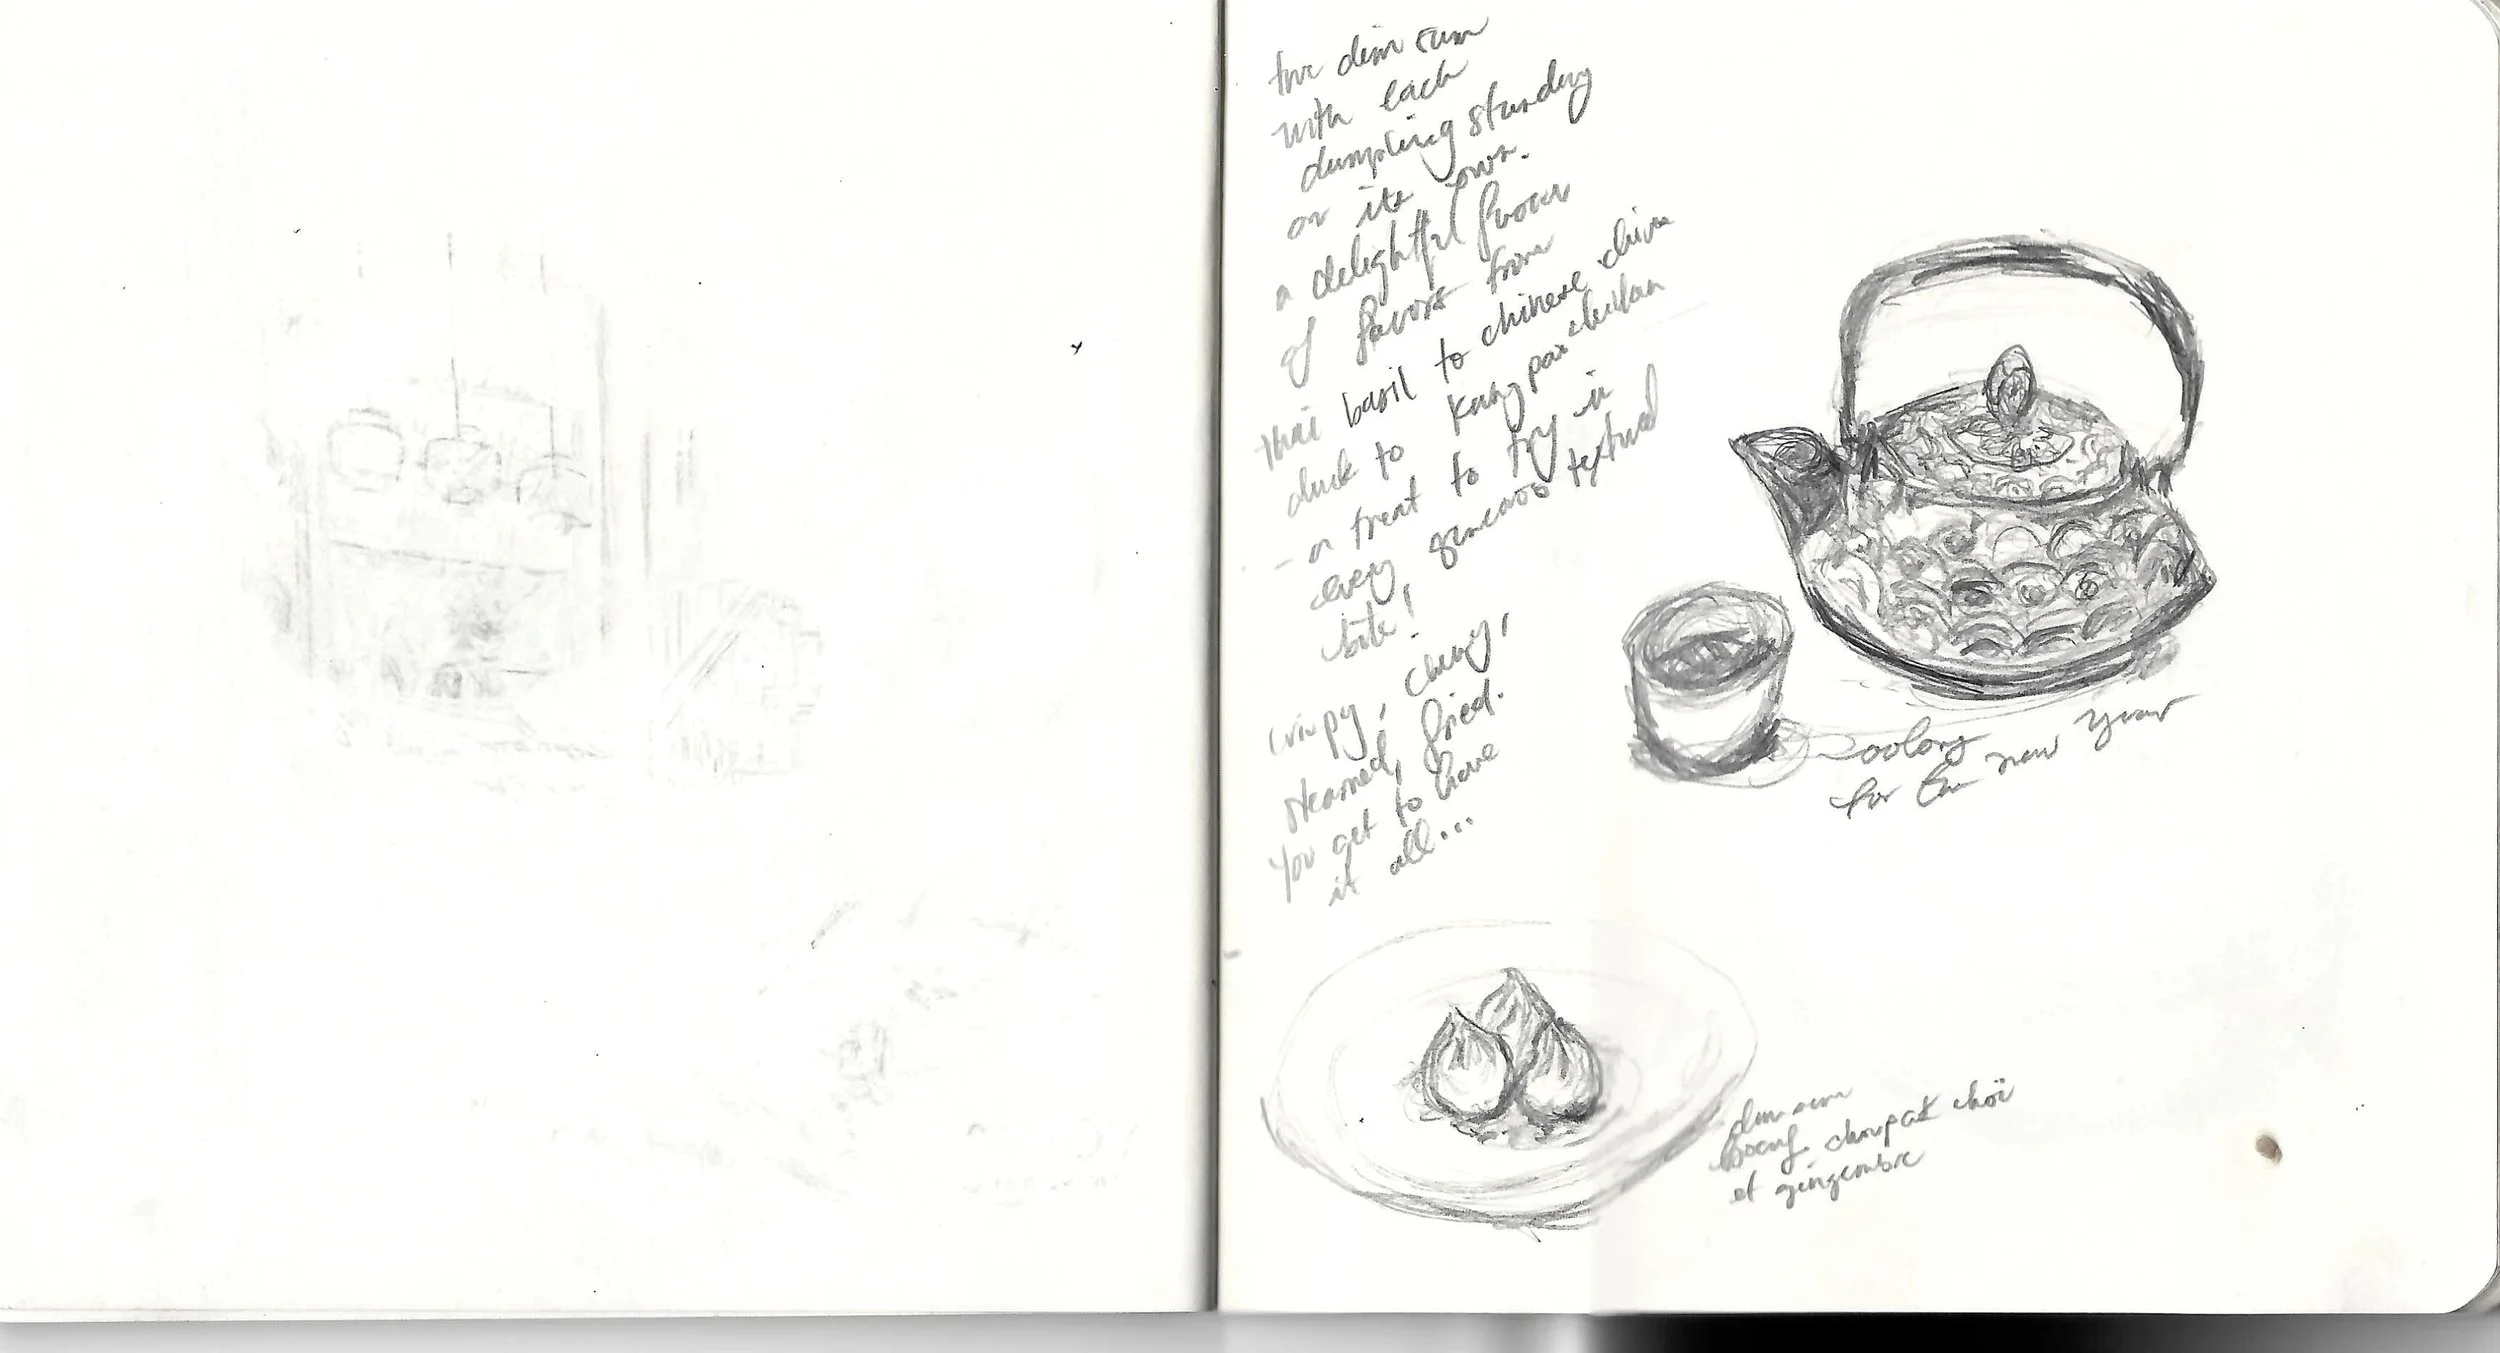 dim sum
with each
dumpling standing
on its own.
a delightful
of flavors from
thai basil to chinese chive
duck to kung pao
a treat to try in
every textured
bite!
crispy, chewy,
steamed, fried.
You get to have
it all...
oolong
for the new year
dim sum
boeuf, chou pak choï
et gingembre